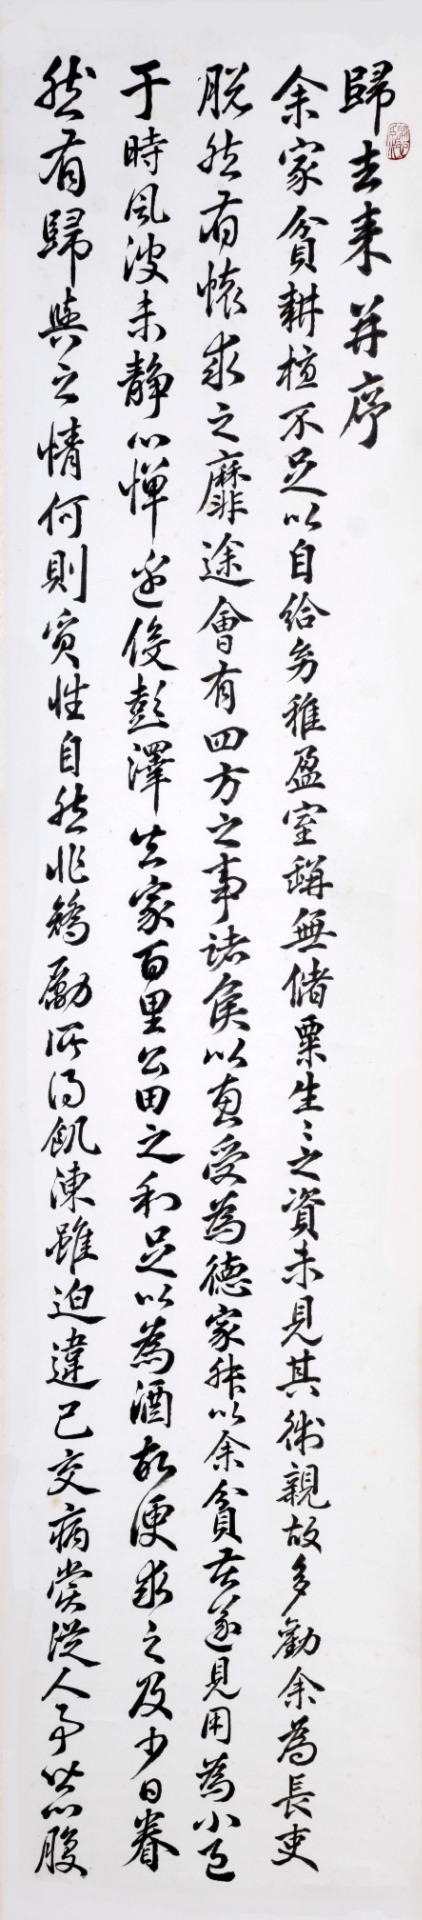 歸去来并序
余家貧耕植不足以自給幼稚盈室缾無儲粟生〻之資未見其術親故多勸余為長吏
脱然有懷求之靡途會有四方之事諸侯以惠愛為德家叔以余貧苦遂見用為小邑
于時風波未静心惮遠役彭澤去家百里公田之利足以為酒故便求之及少日眷
然有歸與之情何則質性自然非矯勵所得飢凍雖迫違己交病嘗從人事皆口腹